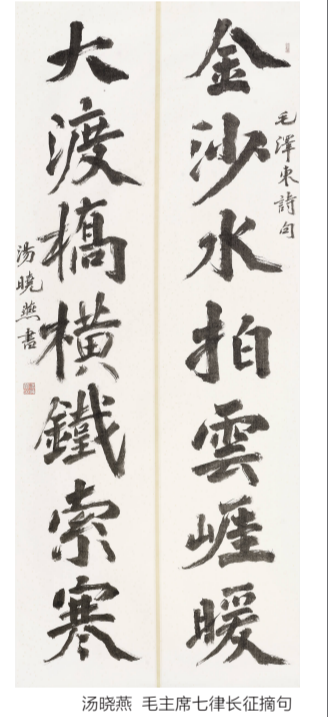 金沙水拍雲崖暖
毛澤東詩句
大渡橋橫鐵索寒
湯曉燕書
汤晓燕 毛主席七律长征摘句